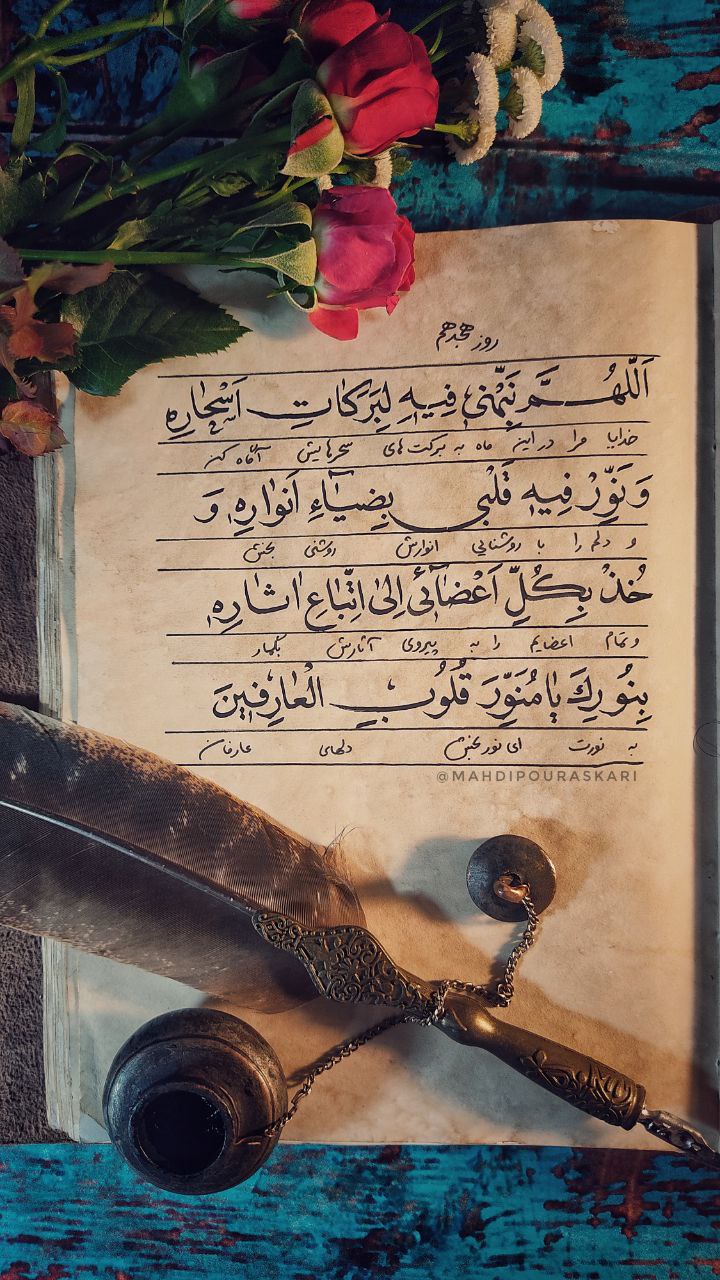 روز هجدهم
اَللّهُمَّ نَبِّهْنی فیهِ لِبَرَکاتِ اَسْحارِهِ
خدایا مرا در این ماه به برکت های سحرهایش آگاه کن
وَ نَوِّرْ فیهِ قَلْبی بِضیآءِ اَنْوارِهِ وَ
و دلم را با روشنایی انوارش روشنی بخش
خُذْ بِکُلِّ اَعْضآئی اِلیَ اتِّباعِ اثارِهِ
و تمام اعضایم را به پیروی آثارش بگمار
بِنُورِکَ یا مُنَوِّرَ قُلُوبِ الْعارِفینَ
به نورت ای نور بخش دلهای عارفان
@MAHDIPOURASKARI